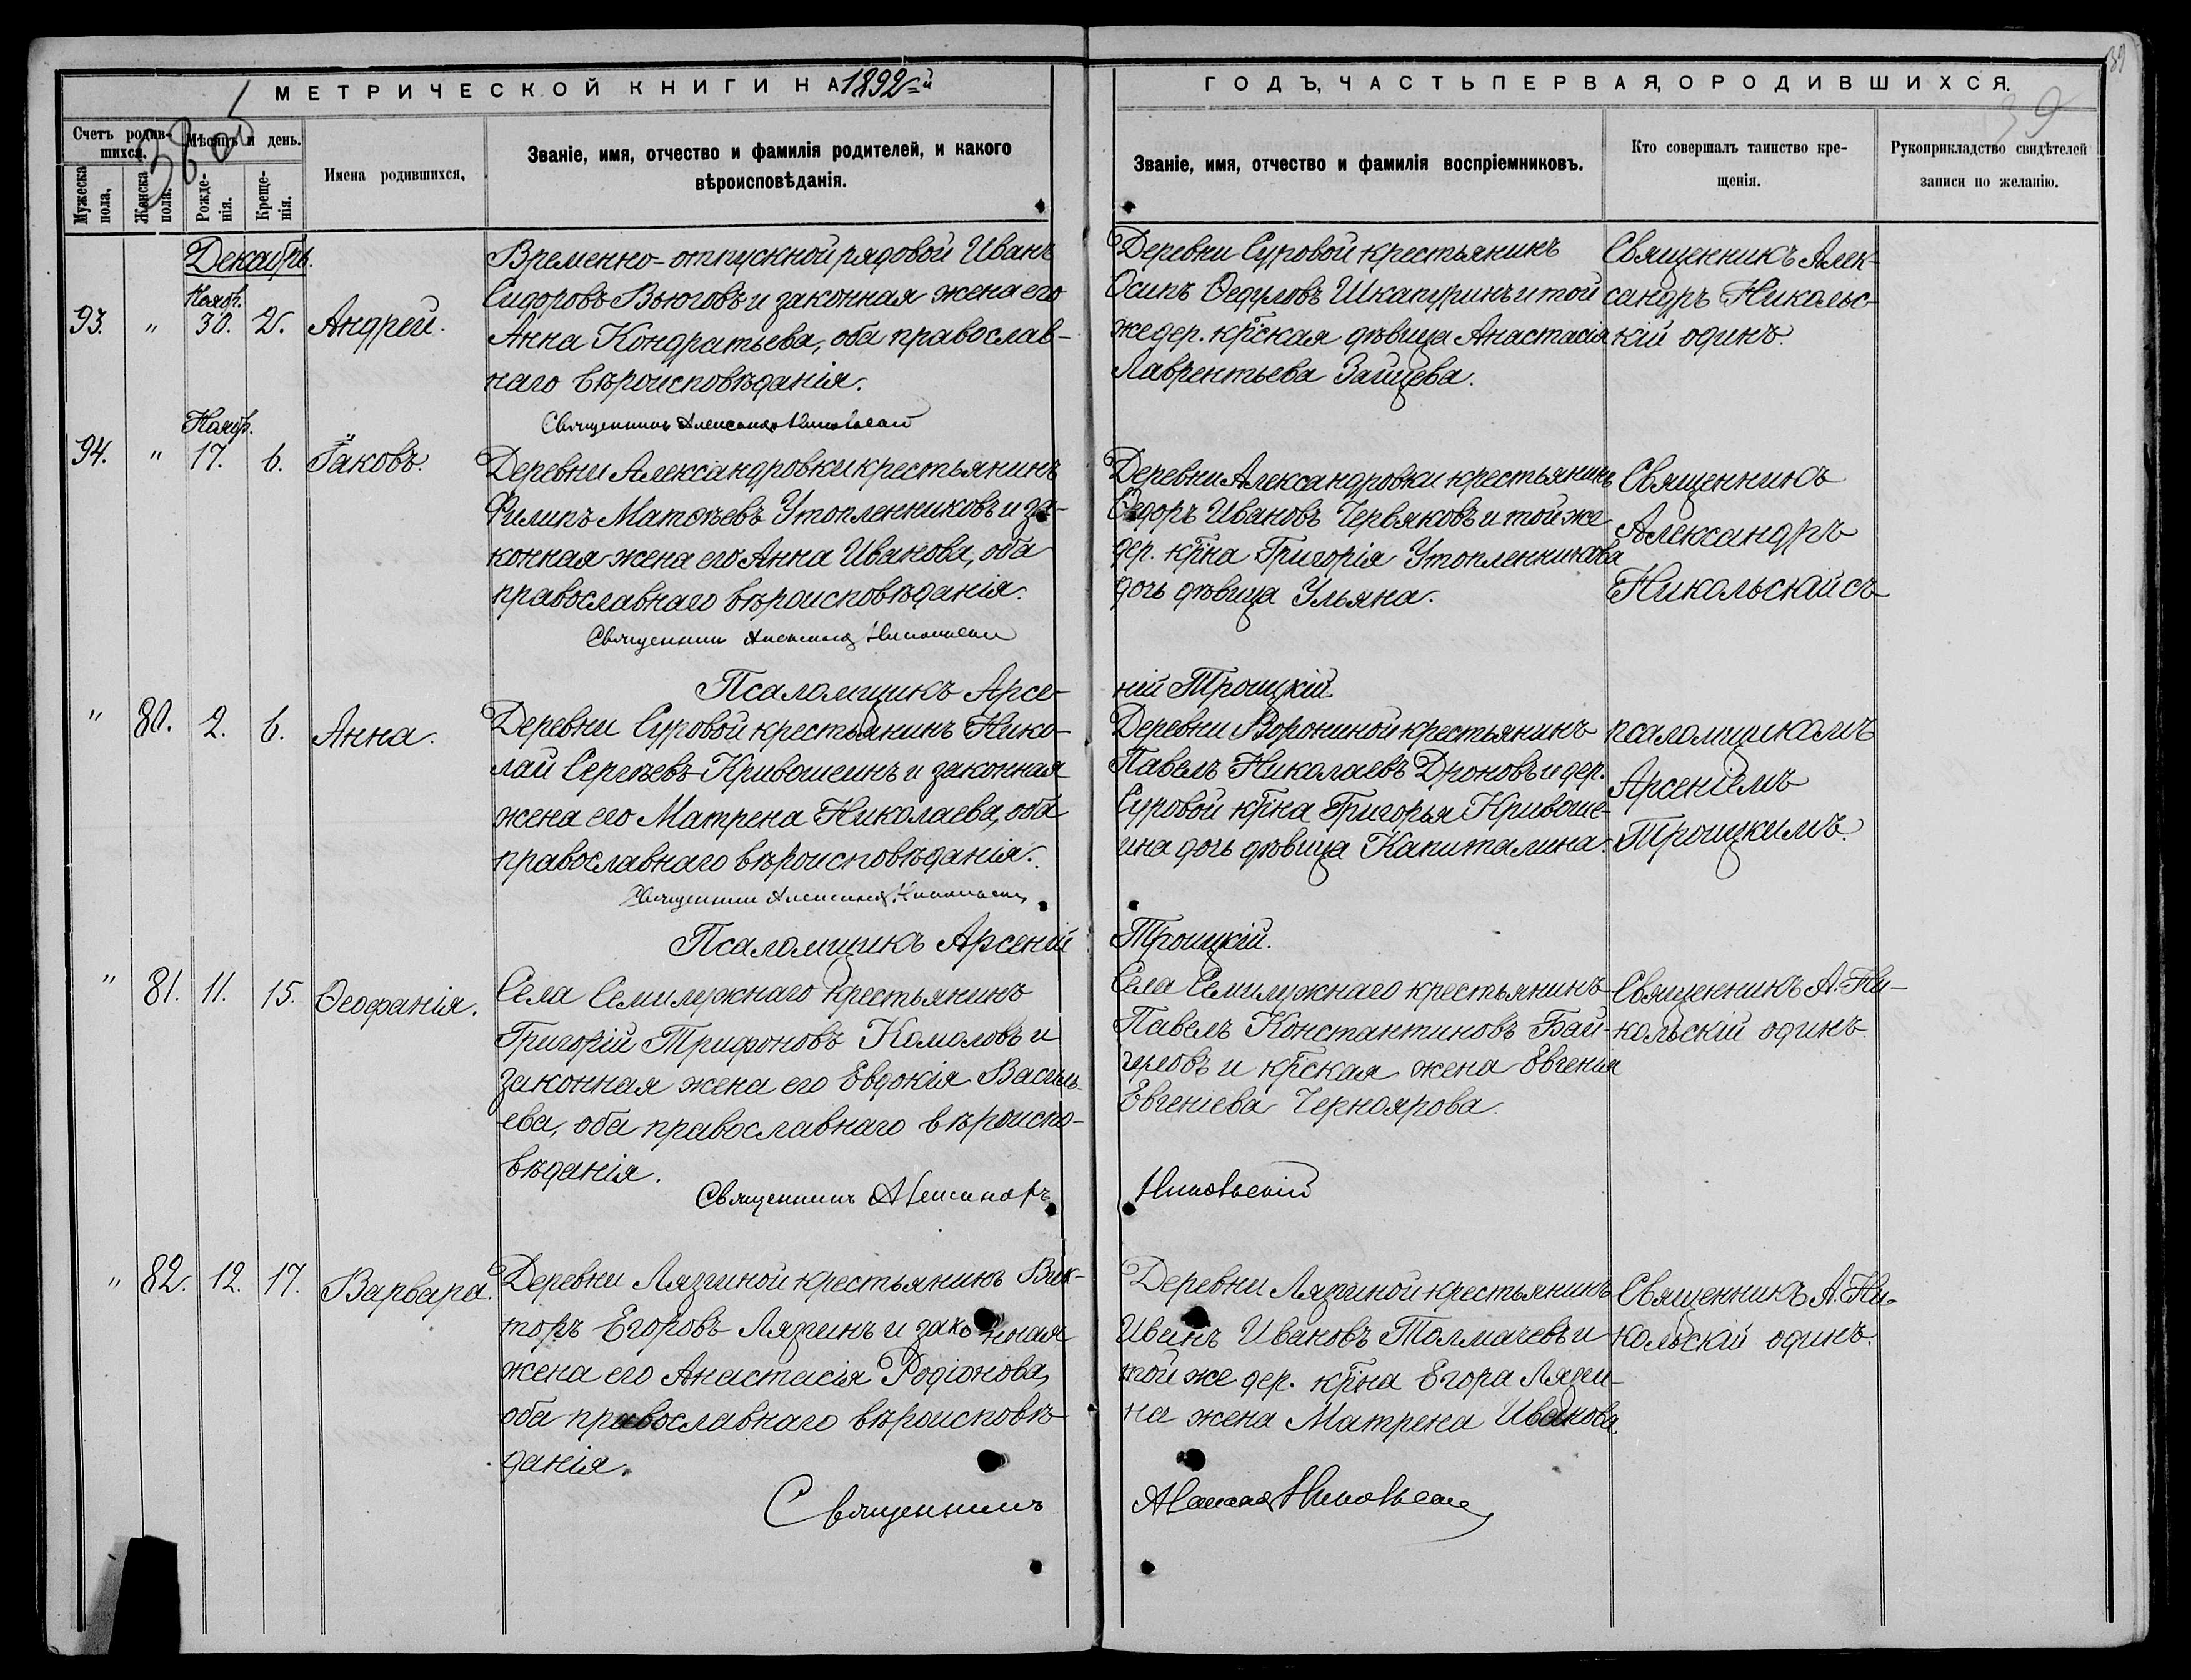 МЕТРИЧЕСКОЙ КНИГИ НА 1892=й
ГОДЪ, ЧАСТЬ ПЕРВАЯ, О РОДИВШИХСЯ.
39
Счетъ родив-
шихся.
Мѣсяцъ и день.
Мужеска пола.
Женска пола.
Рожде-
нія.
Креще-
нія.
Имена родившихся,
Званіе, имя, отчество и фамилія родителей, и какого
вѣроисповѣданія.
Званіе, имя, отчество и фамилія воспріемниковъ.
Кто совершалъ таинство кре-
щенія.
Рукоприкладство свидѣтелей
записи по желанію.
Декабрь.
Нояб.
93. " 30. 2. Андрей.
Временно-отпускной рядовой Иванъ
Сидоровъ Вьюговъ и законная жена его
Анна Кондратьева, оба православ-
наго вѣроисповѣданія.
Священникъ Александръ Никольскій
Деревни Суровой крестьянинъ
Осипъ Ѳедуловъ Шкапуринъ и той
же дер. кр̃ская дѣвица Анастасія
Лаврентьева Зайцева.
Священникъ Алек-
сандръ Николь­с-
кій одинъ.
Нояб.
94. " 17. 6. Іаковъ.
Деревни Александровки крестьянинъ
Филипъ Матѳѣевъ Утопленниковъ и за-
конная жена его Анна Иванова, оба
православнаго вѣроисповѣданія.
Священникъ Александръ Никольскій
Деревни Александровки крестьянинъ
Ѳедоръ Ивановъ Червяковъ и той же
дер. кр̃на Григорія Утопленникова
дочь дѣвица Ульяна.
Священникъ
Александръ
Никольскій съ
Псаломщикъ Арсе-
ній Троицкій.
" 80. 2. 6. Анна.
Деревни Суровой крестьянинъ Нико-
лай Сергѣевъ Кривошеинъ и законная
жена его Матрена Николаева, оба
православнаго вѣроисповѣданія.
Священникъ Александръ Никольскій
Деревни Ворониной крестьянинъ
Павелъ Николаевъ Дроновъ и дер.
Суровой кр̃на Григорья Кривоше-
ина дочь дѣвица Капиталина.
псаломщикомъ
Арсеніемъ
Троицкимъ.
Псаломщикъ Арсеній
Троицкій.
" 81. 11. 15. Ѳеофанія.
Села Семилужнаго крестьянинъ
Григорій Трифоновъ Комоловъ и
законная жена его Евдокія Василь-
ева, оба православнаго вѣроиспо-
вѣданія.
Священникъ Александръ
Никольскій
Села Семилужнаго крестьянинъ
Павелъ Константиновъ Бай-
гуловъ и кр̃ская жена Евгенія
Евгеніева Черноярова.
Священникъ А. Ни-
кольскій одинъ.
" 82. 12. 17. Варвара.
Деревни Лязгиной крестьянинъ Вик-
торъ Егоровъ Лязгинъ и законная
жена его Анастасія Родіонова,
оба православнаго вѣроисповѣ-
данія.
Священникъ
Александръ Никольскій
Деревни Лязгиной крестьянинъ
Иванъ Ивановъ Толмачевъ и
той же дер. кр̃на Егора Лязги-
на жена Матрена Иванова.
Священникъ А. Ни-
кольскій одинъ.